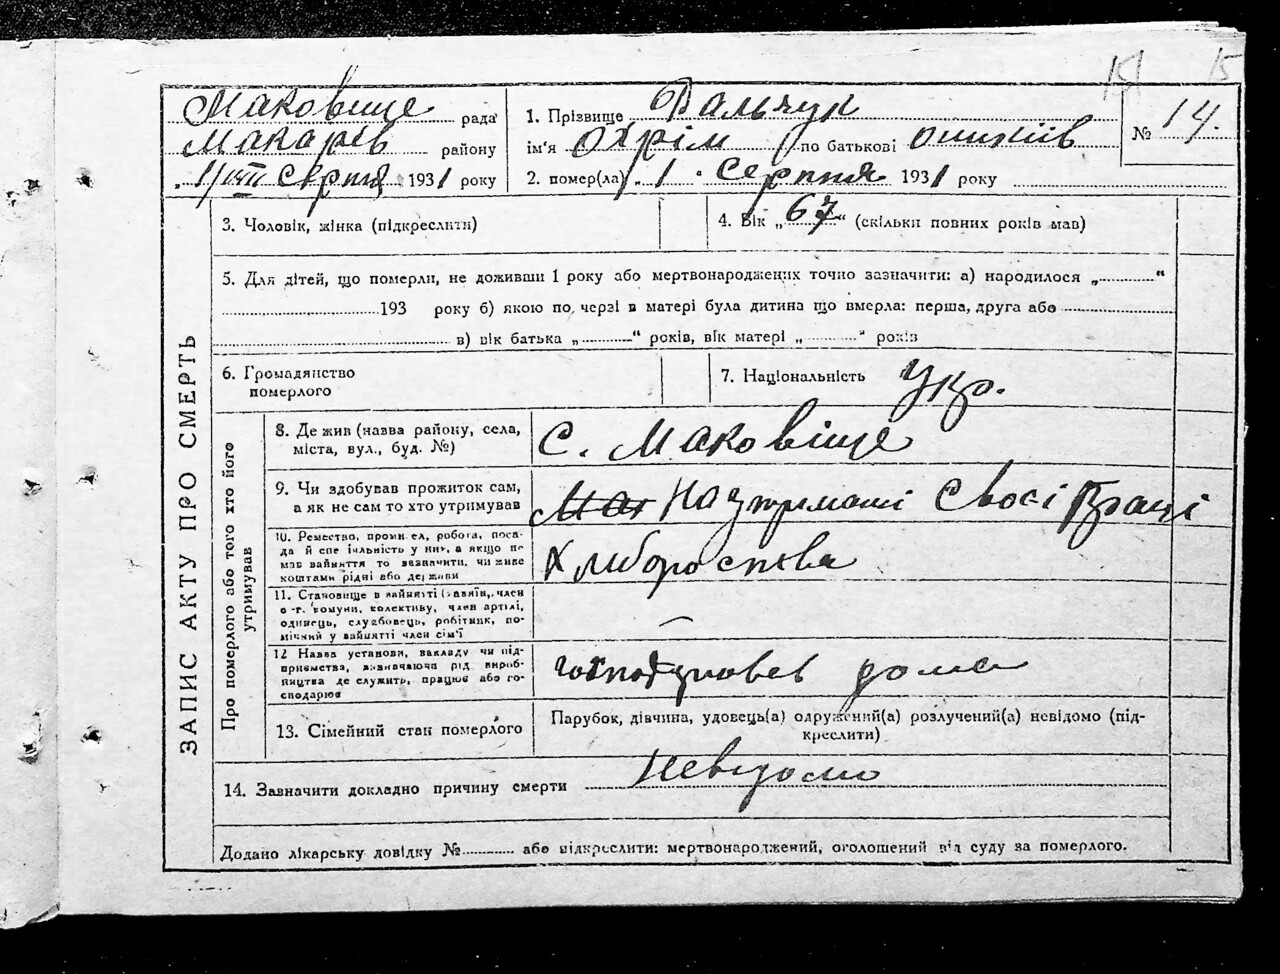 151 15
Маковище рада
Макарів району
„1/VIII Серпня 1931 року
1. Прізвище Дальчук
ім'я Охрім по батькові
№ 14.
2. помер(ла) „1" Серпня 1931 року
ЗАПИС АКТУ ПРО СМЕРТЬ
3. Чоловік, жінка (підкреслити)
4. Вік „67" (скільки повних років мав)
5. Для дітей, що померли, не доживши 1 року або мертвонароджених точно зазначити: а) народилося „ “
193 року б) якою по черзі в матері була дитина що вмерла: перша, друга або
в) вік батька „ “ років, вік матері „ “ років
6. Громадянство
померлого
7. Національність Укр.
Про померлого або того хто його
утримував
8. Де жив (назва району, села,
міста, вул., буд. №)
С. Маковище
9. Чи здобував прожиток сам,
а як не сам то хто утримував
На утримані своєї праці
10. Ремество, промисел, робота, поса-
да й спеціяльність у них, а якщо не
мав заняття то зазначити, чи живе
коштами рідні або держави
11. Становище в занятті (хазяїн, член
с-г. комуни, колективу, член артілі,
одинець, службовець, робітник, по-
мічний у занятті член сім'ї
12 Назва установи, закладу чи під-
приємства, визначаючи рід вироб-
ництва де служить, працює або го-
сподарює
дома
13. Сімейний стан померлого
Парубок, дівчина, удовець(а) одружений(а) розлучений(а) невідомо (під-
креслити)
14. Зазначити докладно причину смерти Невідомо
Додано лікарську довідку № або відкреслити: мертвонароджений, оголошений від суду за померлого.